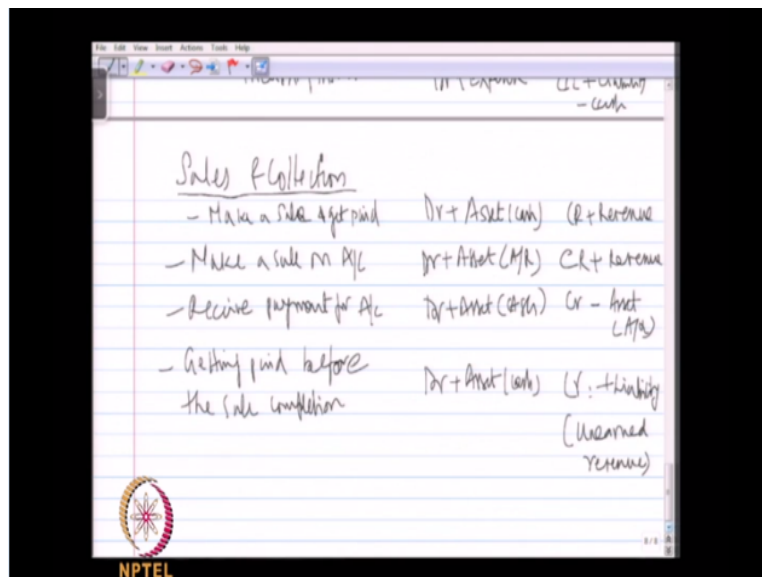 File Edit View Insert Actions Tools Help
Dr + expense Cr + Liability
- cash
Sales & Collection
- Make a sale & get paid Dr + Asset (cash) CR + Revenue
- Make a sale on A/C Dr + Asset (A/R) CR + Revenue
- Receive payment for A/c Dr + Asset (cash) Cr - Asset
(A/R)
- Getting paid before Dr + Asset (cash) Cr: + Liability
the sale completion (Unearned
revenue)
8/8
NPTEL